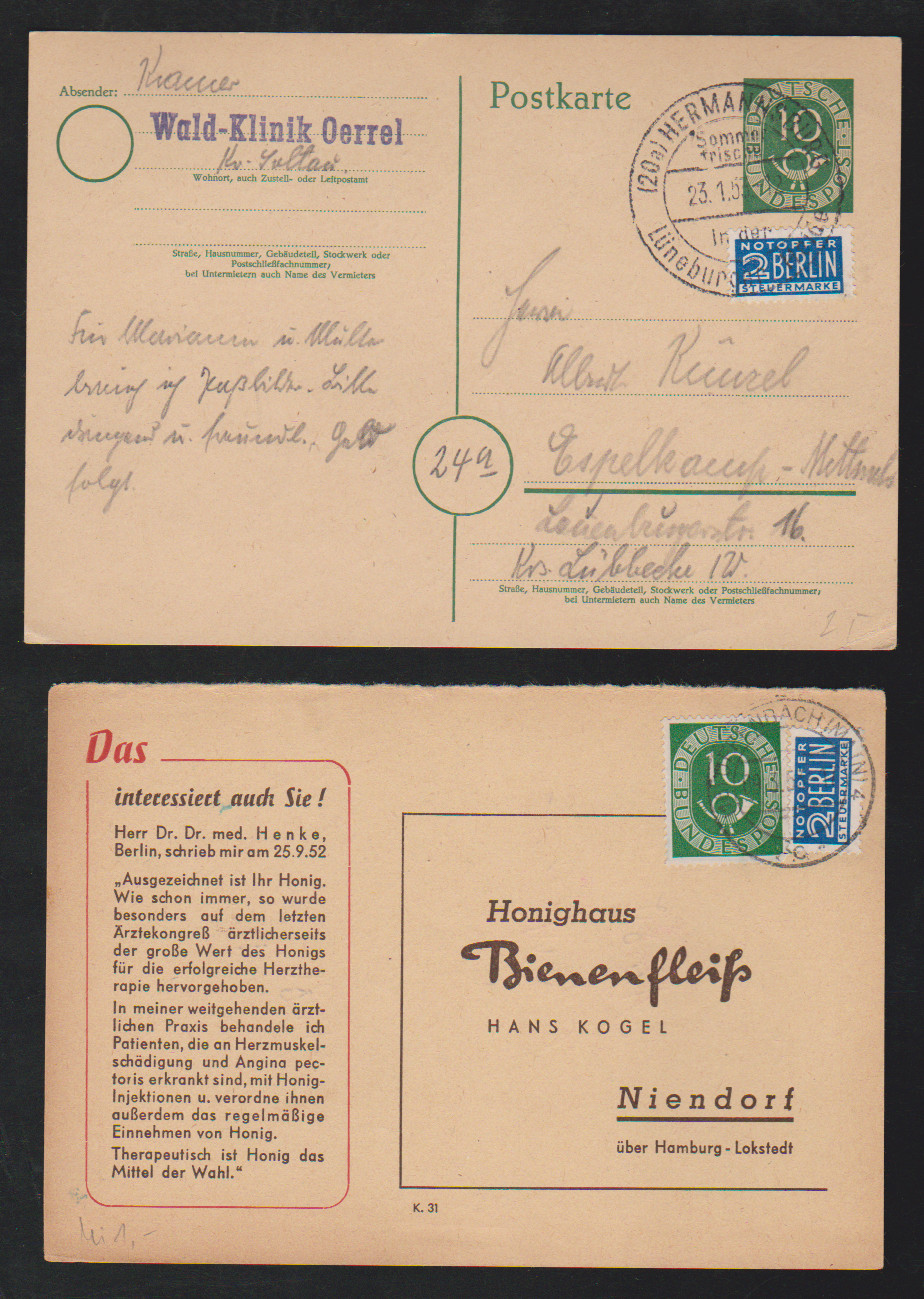 Absender: Kramer
Wald-Klinik Oerrel
Kr. Soltau
Wohnort, auch Zustell- oder Leitpostamt
Straße, Hausnummer, Gebäudeteil, Stockwerk oder
Postschließfachnummer;
bei Untermietern auch Name des Vermieters
Für Mariann u. 
ich Paßbilder. Bitte
dringend u. freundl. Geld
folgt.
Postkarte
DEUTSCHE BUNDESPOST
10
(20a) HERMANNSBURG
Sommer
frische
23.1.53
In der
Lüneburger
NOTOPFER
2 BERLIN
STEUERMARKE
Herrn
Albrecht Künzel
24a
Espelkamp-Mittwald
Lauenburgerstr. 16.
Krs. Lübbecke i/W.
Straße, Hausnummer, Gebäudeteil, Stockwerk oder Postschließfachnummer;
bei Untermietern auch Name des Vermieters
Das
interessiert auch Sie!
Herr Dr. Dr. med. Henke,
Berlin, schrieb mir am 25.9.52
„Ausgezeichnet ist Ihr Honig.
Wie schon immer, so wurde
besonders auf dem letzten
Ärztekongreß ärztlicherseits
der große Wert des Honigs
für die erfolgreiche Herzthe-
rapie hervorgehoben.
In meiner weitgehenden ärzt-
lichen Praxis behandele ich
Patienten, die an Herzmuskel-
schädigung und Angina pec-
toris erkrankt sind, mit Honig-
Injektionen u. verordne ihnen
außerdem das regelmäßige
Einnehmen von Honig.
Therapeutisch ist Honig das
Mittel der Wahl.“
DEUTSCHE BUNDESPOST
10
NOTOPFER
2 BERLIN
STEUERMARKE
NDACH (MAIN) 4
Honighaus
Bienenfleiß
HANS KOGEL
Niendorf
über Hamburg-Lokstedt
K. 31